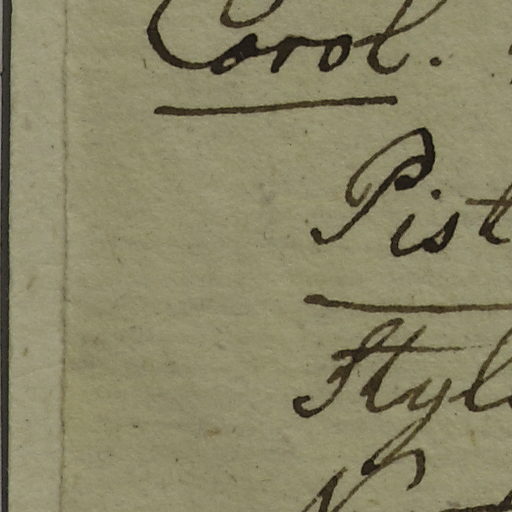 Carol.
Pist
Styl